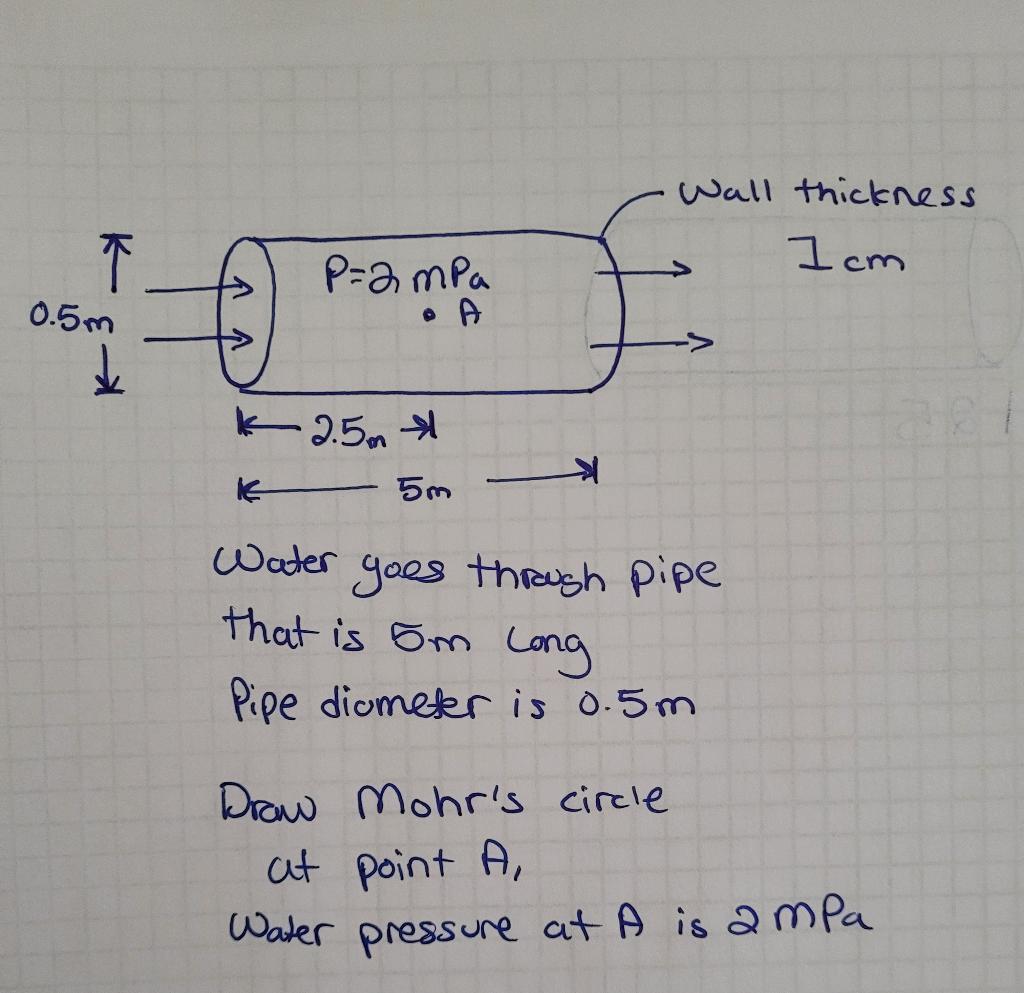 Wall thickness
1 cm
P=2 mPa
• A
0.5m
2.5m
5m
Water goes through pipe
that is 5m long
Pipe diameter is 0.5m
Draw Mohr's circle
at point A,
Water pressure at A is 2 mPa